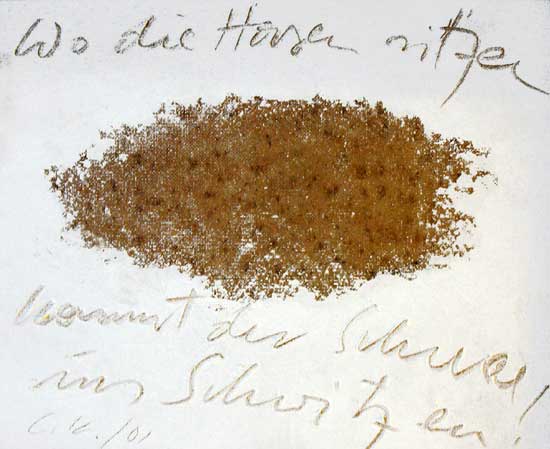 Wo die Hasen sitzen
kommt der Schnee
ins Schwitzen!
/01